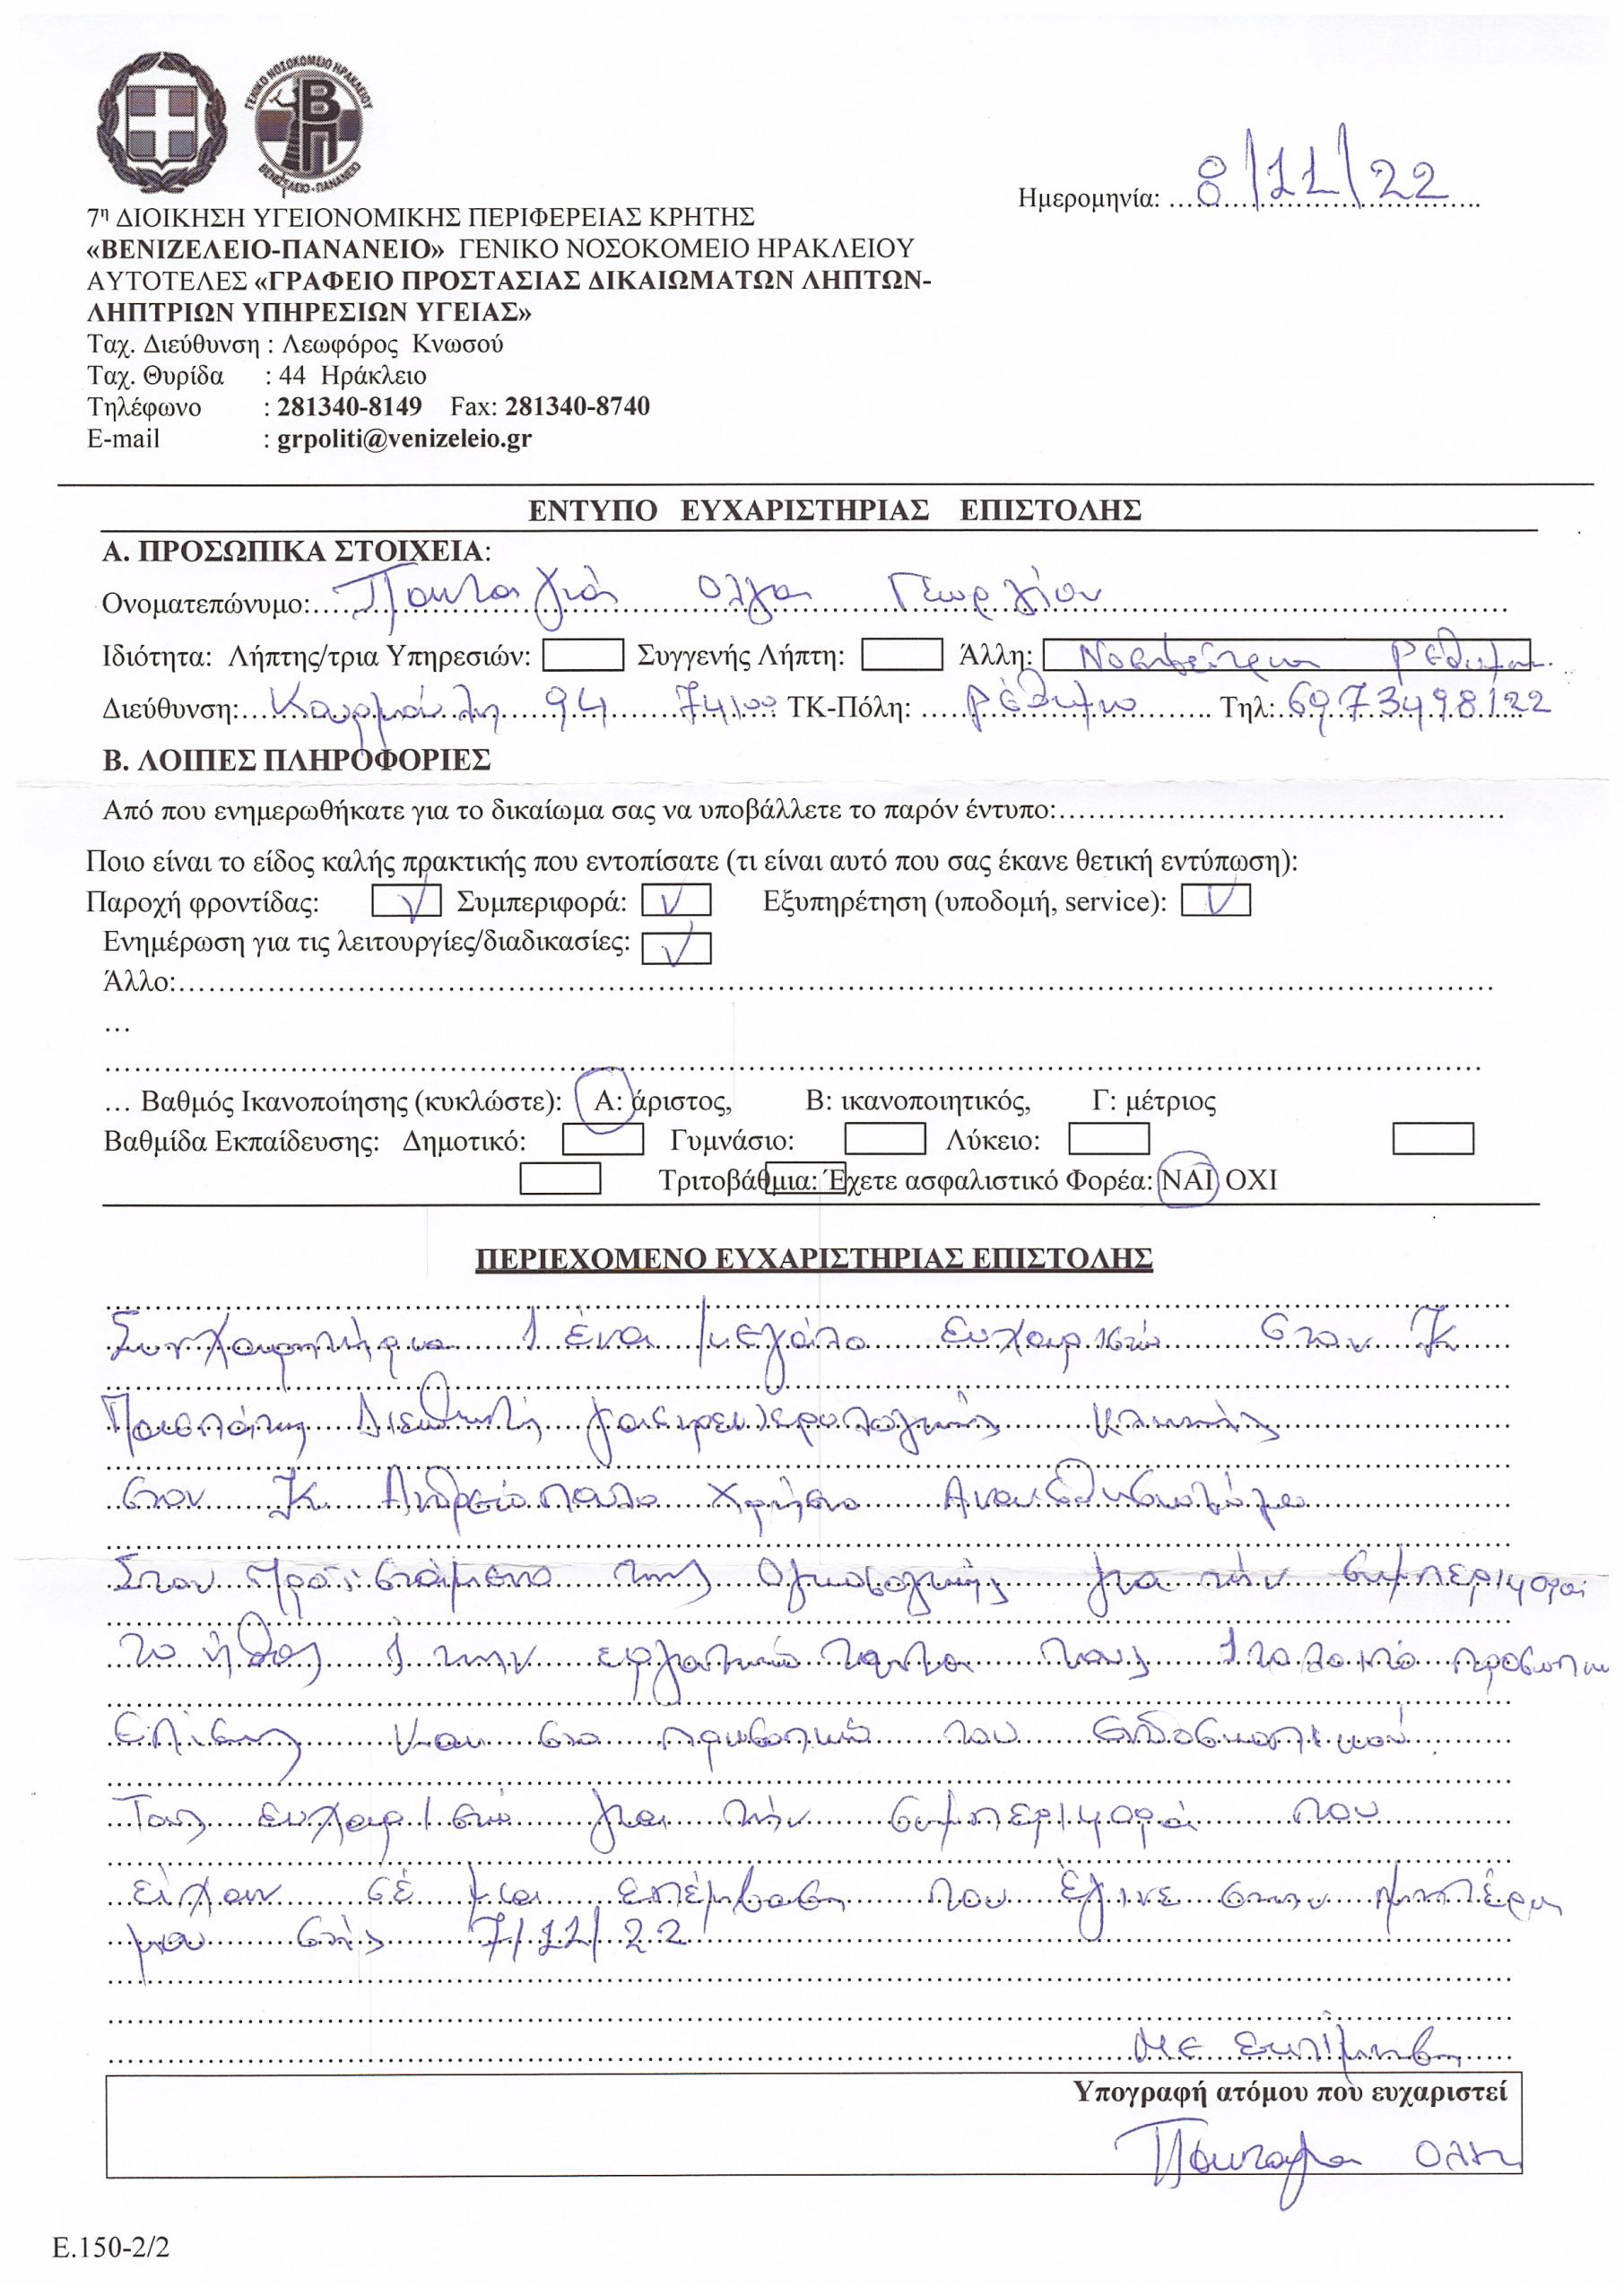 ΓΕΝΙΚΟ ΝΟΣΟΚΟΜΕΙΟ ΗΡΑΚΛΕΙΟΥ
ΒΠ
ΒΕΝΙΖΕΛΕΙΟ-ΠΑΝΑΝΕΙΟ
Ημερομηνία: 8/11/22
7η ΔΙΟΙΚΗΣΗ ΥΓΕΙΟΝΟΜΙΚΗΣ ΠΕΡΙΦΕΡΕΙΑΣ ΚΡΗΤΗΣ
«ΒΕΝΙΖΕΛΕΙΟ-ΠΑΝΑΝΕΙΟ» ΓΕΝΙΚΟ ΝΟΣΟΚΟΜΕΙΟ ΗΡΑΚΛΕΙΟΥ
ΑΥΤΟΤΕΛΕΣ «ΓΡΑΦΕΙΟ ΠΡΟΣΤΑΣΙΑΣ ΔΙΚΑΙΩΜΑΤΩΝ ΛΗΠΤΩΝ-
ΛΗΠΤΡΙΩΝ ΥΠΗΡΕΣΙΩΝ ΥΓΕΙΑΣ»
Ταχ. Διεύθυνση : Λεωφόρος Κνωσού
Ταχ. Θυρίδα : 44 Ηράκλειο
Τηλέφωνο : 281340-8149 Fax: 281340-8740
E-mail : grpoliti@venizeleio.gr
ΕΝΤΥΠΟ ΕΥΧΑΡΙΣΤΗΡΙΑΣ ΕΠΙΣΤΟΛΗΣ
Α. ΠΡΟΣΩΠΙΚΑ ΣΤΟΙΧΕΙΑ:
Ονοματεπώνυμο: Πανταγιά Ολγα Γεωργίου
Ιδιότητα: Λήπτης/τρια Υπηρεσιών: Συγγενής Λήπτη: Άλλη:
Διεύθυνση: 94 74100 ΤΚ-Πόλη: Ρέθυμνο Τηλ: 6973498122
Β. ΛΟΙΠΕΣ ΠΛΗΡΟΦΟΡΙΕΣ
Από που ενημερωθήκατε για το δικαίωμα σας να υποβάλλετε το παρόν έντυπο:
Ποιο είναι το είδος καλής πρακτικής που εντοπίσατε (τι είναι αυτό που σας έκανε θετική εντύπωση):
Παροχή φροντίδας: √ Συμπεριφορά: √ Εξυπηρέτηση (υποδομή, service): √
Ενημέρωση για τις λειτουργίες/διαδικασίες: √
Άλλο:
...
... Βαθμός Ικανοποίησης (κυκλώστε): Α: άριστος, Β: ικανοποιητικός, Γ: μέτριος
Βαθμίδα Εκπαίδευσης: Δημοτικό: Γυμνάσιο: Λύκειο:
Τριτοβάθμια: Έχετε ασφαλιστικό Φορέα: ΝΑΙ ΟΧΙ
ΠΕΡΙΕΧΟΜΕΝΟ ΕΥΧΑΡΙΣΤΗΡΙΑΣ ΕΠΙΣΤΟΛΗΣ
Συγχαρητήρια ένα μεγάλο ευχαριστώ στον Κ
Διευθυντή κλινικής
στον Κ Ανδρεόπουλο Χρήστο Αναισθησιολόγο
Στον προϊστάμενο της Ογκολογικής για την συμπεριφορά
το ήθος την εργατικότητα τους το λοιπό
Επίσης και στο προσωπικό του ενδοσκοπικού
Τους ευχαριστώ για την συμπεριφορά που
είχαν σέ μια επέμβαση που έγινε στην μητέρα
μου στις 7/11/22
Με εκτίμηση
Υπογραφή ατόμου που ευχαριστεί
Πανταγιά Ολγα
Ε.150-2/2